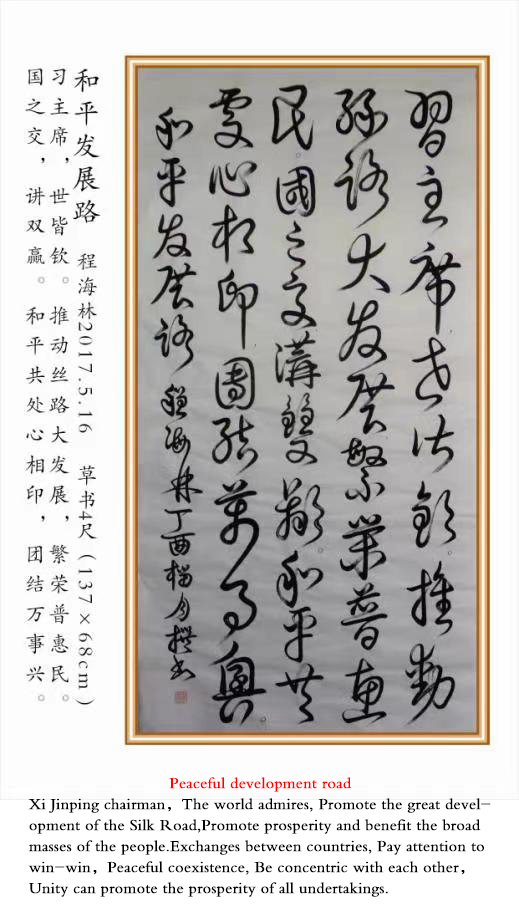 習主席世皆欽推動
絲路大发展繁榮普惠
民國之交講雙贏和平共
處心相印團結萬事興
和平发展路 程海林丁酉榴月撰书
和平发展路 程海林2017.5.16 草书4尺(137×68cm)
习主席，世皆钦。推动丝路大发展，繁荣普惠民。
国之交，讲双赢。和平共处心相印，团结万事兴。
Peaceful development road
Xi Jinping chairman，The world admires, Promote the great devel-
opment of the Silk Road,Promote prosperity and benefit the broad
masses of the people.Exchanges between countries, Pay attention to
win-win，Peaceful coexistence, Be concentric with each other，
Unity can promote the prosperity of all undertakings.